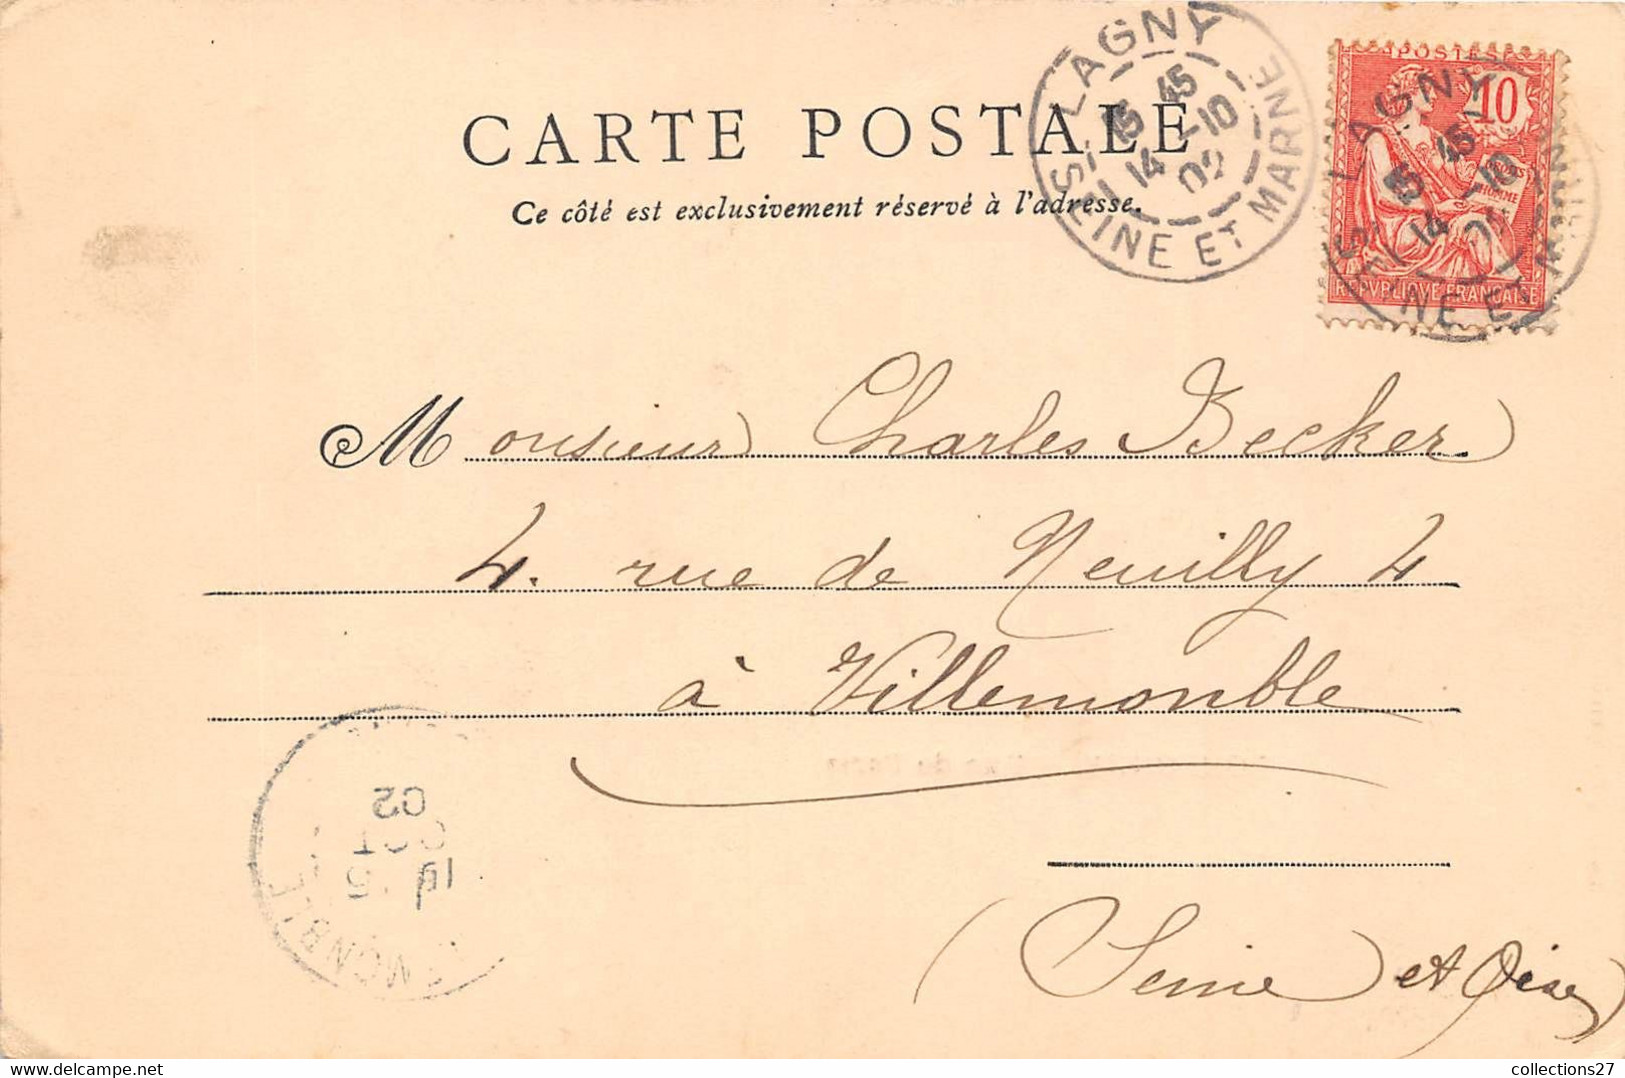 CARTE POSTALE
Ce côté est exclusivement réservé à l'adresse.
LAGNY
15 45
14 -10
02
SEINE ET MARNE
POSTES
10
DROITS
DE
L'HOMME
REPVBLIQVE FRANÇAISE
LAGNY
15 45
14 -10
02
Monsieur Charles Becker
4. rue de Neuilly 4
à Villemonble
(Seine et Oise)
02
OCT
MONBLE
collections27